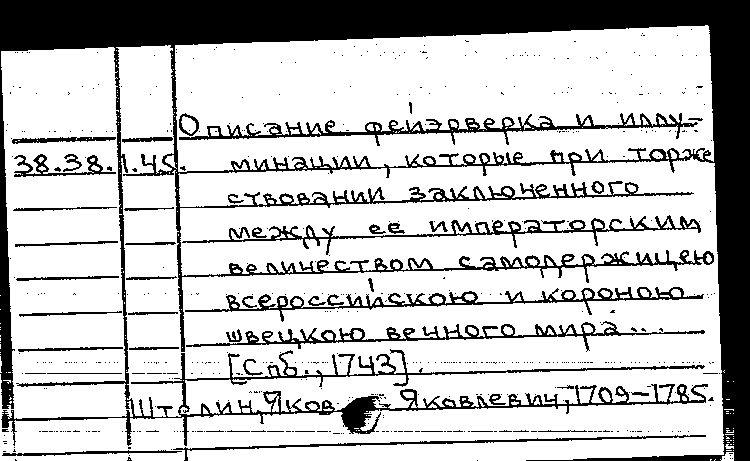 Описание фейэрверка и иллу-
38.38.1.45. минации, которые при торже
ствовании заключенного
между ее императорским
величеством самодержицею
всероссийскою и короною
швецкою вечного мира...
[Спб., 1743].
Штелин, Яков Яковлевич, 1709-1785.